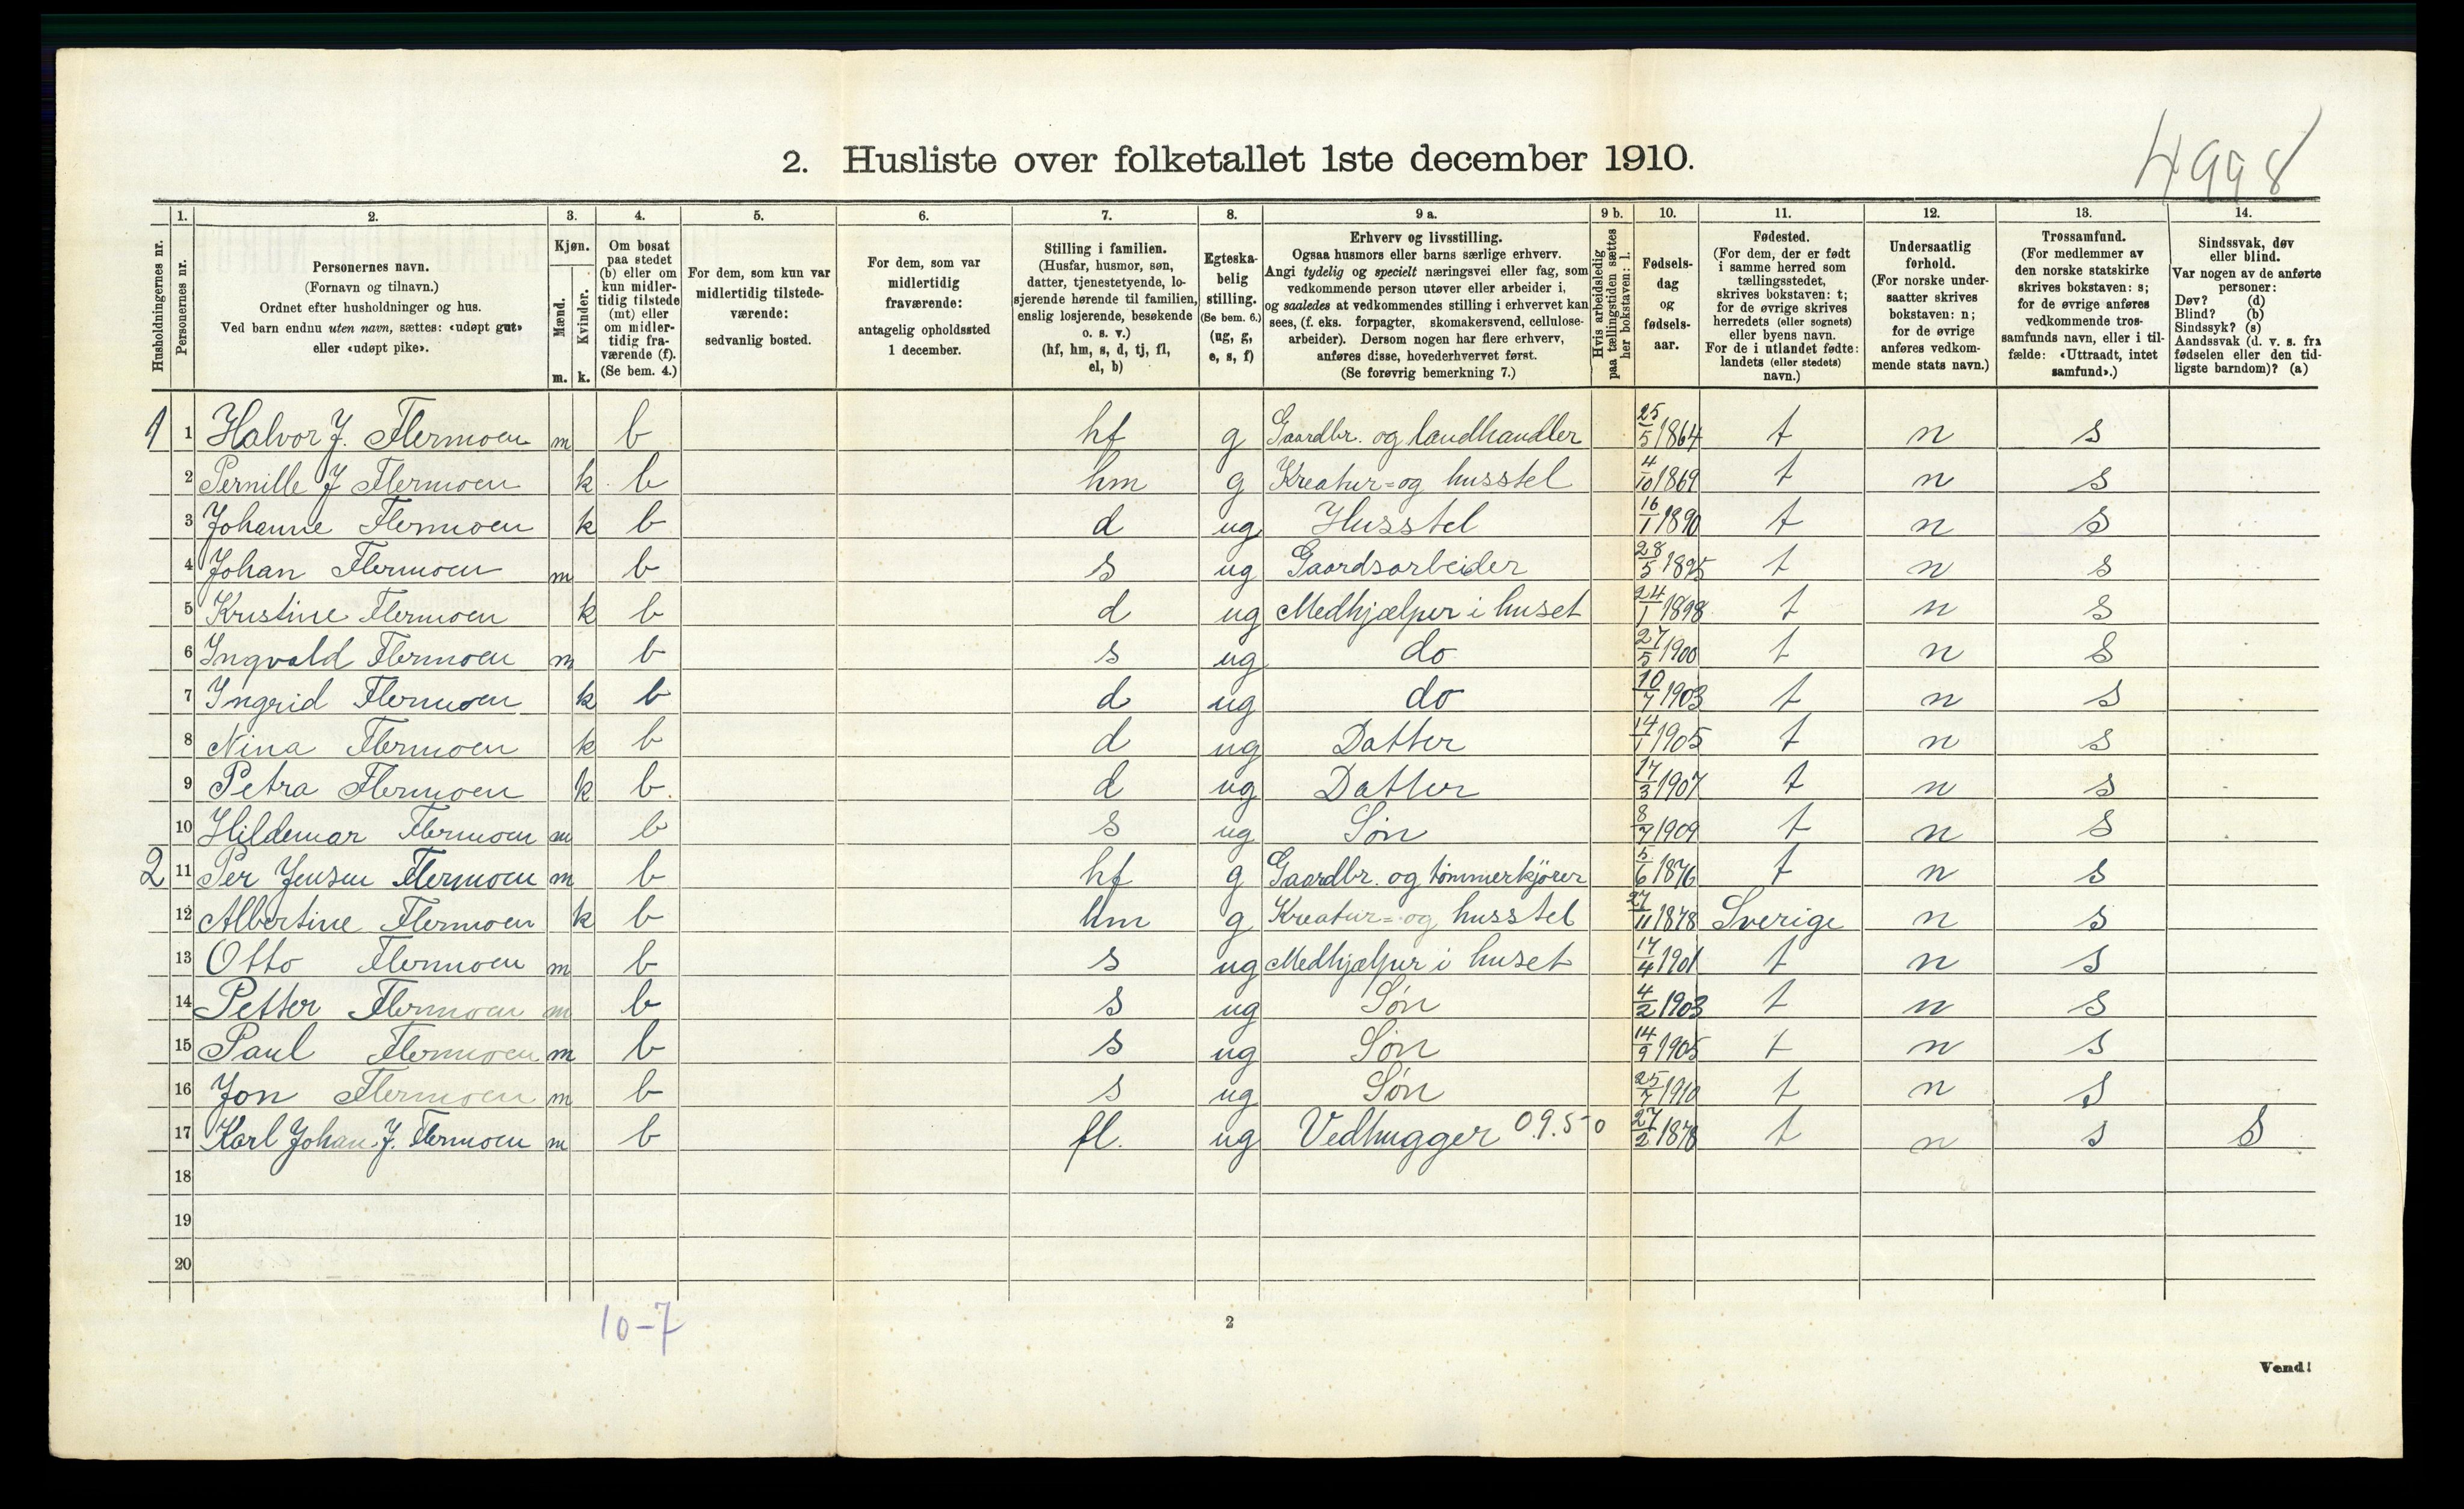 4998
2. Husliste over folketallet 1ste december 1910.
Husholdningernes nr.
1.
Personernes nr.
2.
Personernes navn.
(Fornavn og tilnavn.)
Ordnet efter husholdninger og hus.
Ved barn endnu uten navn, sættes: «udøpt gut»
eller «udøpt pike».
3.
Kjøn.
Mænd.
Kvinder.
m. k.
4.
Om bosat
paa stedet
(b) eller om
kun midler-
tidig tilstede
(mt) eller
om midler-
tidig fra-
værende (f).
(Se bem. 4.)
5.
For dem, som kun var
midlertidig tilstede-
værende:
sedvanlig bosted.
6.
For dem, som var
midlertidig
fraværende:
antagelig opholdssted
1 december.
7.
Stilling i familien.
(Husfar, husmor, søn,
datter, tjenestetyende, lo-
sjerende hørende til familien,
enslig losjerende, besøkende
o. s. v.)
(hf, hm, s, d, tj, fl,
el, b)
8.
Egteska-
belig
stilling.
(Se bem. 6.)
(ug, g,
e, s, f)
9 a.
Erhverv og livsstilling.
Ogsaa husmors eller barns særlige erhverv.
Angi tydelig og specielt næringsvei eller fag, som
vedkommende person utøver eller arbeider i,
og saaledes at vedkommendes stilling i erhvervet kan
sees, (f. eks. forpagter, skomakersvend, cellulose-
arbeider). Dersom nogen har flere erhverv,
anføres disse, hovederhvervet først.
(Se forøvrig bemerkning 7.)
9 b.
Hvis arbeidsledig
paa tællingstiden sættes
her bokstaven: l.
10.
Fødsels-
dag
og
fødsels-
aar.
11.
Fødested.
(For dem, der er født
i samme herred som
tællingsstedet,
skrives bokstaven: t;
for de øvrige skrives
herredets (eller sognets)
eller byens navn.
For de i utlandet fødte:
landets (eller stedets)
navn.)
12.
Undersaatlig
forhold.
(For norske under-
saatter skrives
bokstaven: n;
for de øvrige
anføres vedkom-
mende stats navn.)
13.
Trossamfund.
(For medlemmer av
den norske statskirke
skrives bokstaven: s;
for de øvrige anføres
vedkommende tros-
samfunds navn, eller i til-
fælde: «Uttraadt, intet
samfund».)
14.
Sindssvak, døv
eller blind.
Var nogen av de anførte
personer:
Døv? (d)
Blind? (b)
Sindssyk? (s)
Aandssvak (d. v. s. fra
fødselen eller den tid-
ligste barndom)? (a)
1 1 Halvor J. Flermoen m b hf g Gaardbr. og landhandler 25/5 1864 t n s
2 Pernille J Flermoen k b hm g Kreatur= og husstel 4/10 1869 t n s
3 Johanne Flermoen k b d ug Husstel 16/1 1890 t n s
4 Johan Flermoen m b s ug Gaardsarbeider 28/5 1895 t n s
5 Kristine Flermoen k b d ug Medhjælper i huset 24/1 1898 t n s
6 Ingvald Flermoen m b s ug do 27/5 1900 t n s
7 Ingrid Flermoen k b d ug do 10/7 1903 t n s
8 Nina Flermoen k b d ug Datter 14/1 1905 t n s
9 Petra Flermoen k b. d ug Datter 17/3 1907 t n s
10 Hildemar Flermoen m b s ug Søn 8/7 1909 t n s
2 11 Per Jensen Flermoen m b hf g Gaardbr. og tømmerkjører 5/6 1876 t n s
12 Albertine Flermoen k b hm g Kreatur= og husstel 27/11 1878 Sverige n s
13 Otto Flermoen m b s ug Medhjælper i huset 17/4 1901 t n s
14 Petter Flermoen m b s ug Søn 4/2 1903 t n s
15 Paul Flermoen m b s ug Søn 14/9 1905 t n s
16 Jon Flermoen m b s ug Søn 25/7 1910 t n s
17 Karl Johan J. Flermoen m b fl. ug Vedhugger 0.9.5-0 27/2 1878 t n s S
18
19
20
10-7
2
Vend!